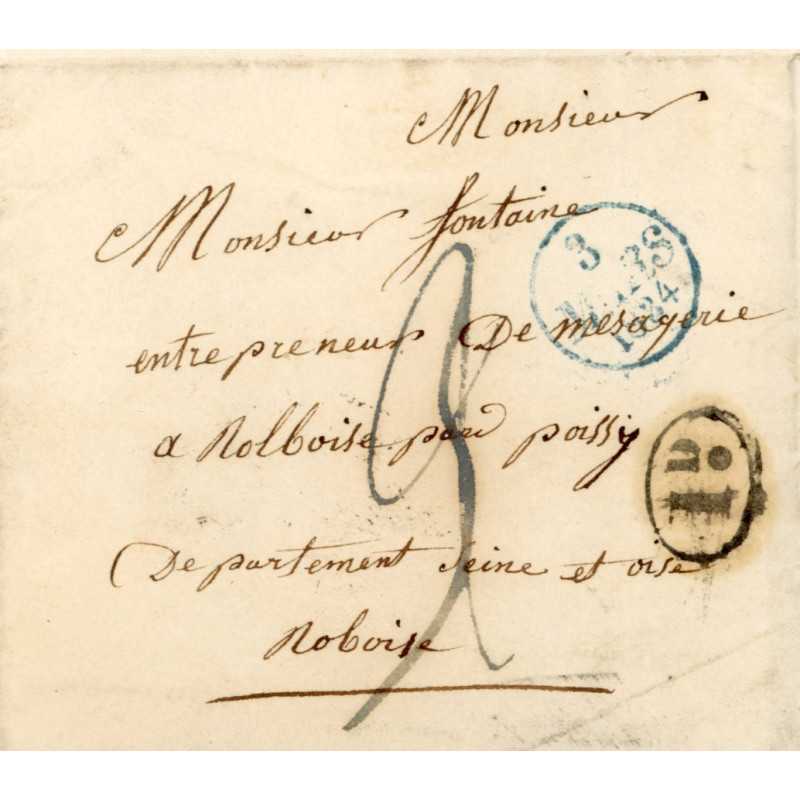 Monsieur
Monsieur fontaine
entrepreneur De mesagerie
a Rolboise par poissy
Departement Seine et oise
Roboise
3
MARS
1834
1D